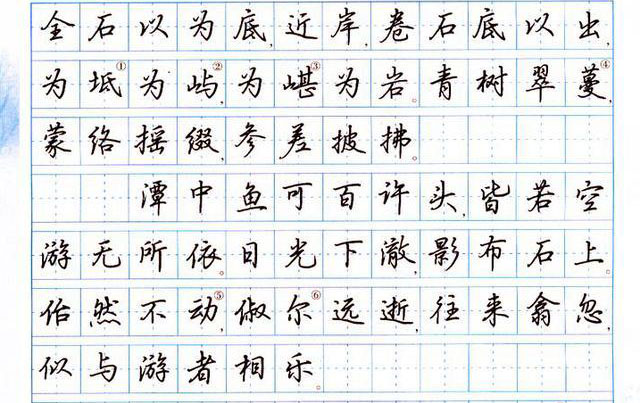 全石以为底,近岸,卷石底以出,
为坻①为屿,②为嵁③为岩。青树翠蔓,④
蒙络摇缀,参差披拂。
潭中鱼可百许头,皆若空
游无所依。日光下澈,影布石上。
佁然不动,⑤俶尔⑥远逝,往来翕忽,
似与游者相乐。